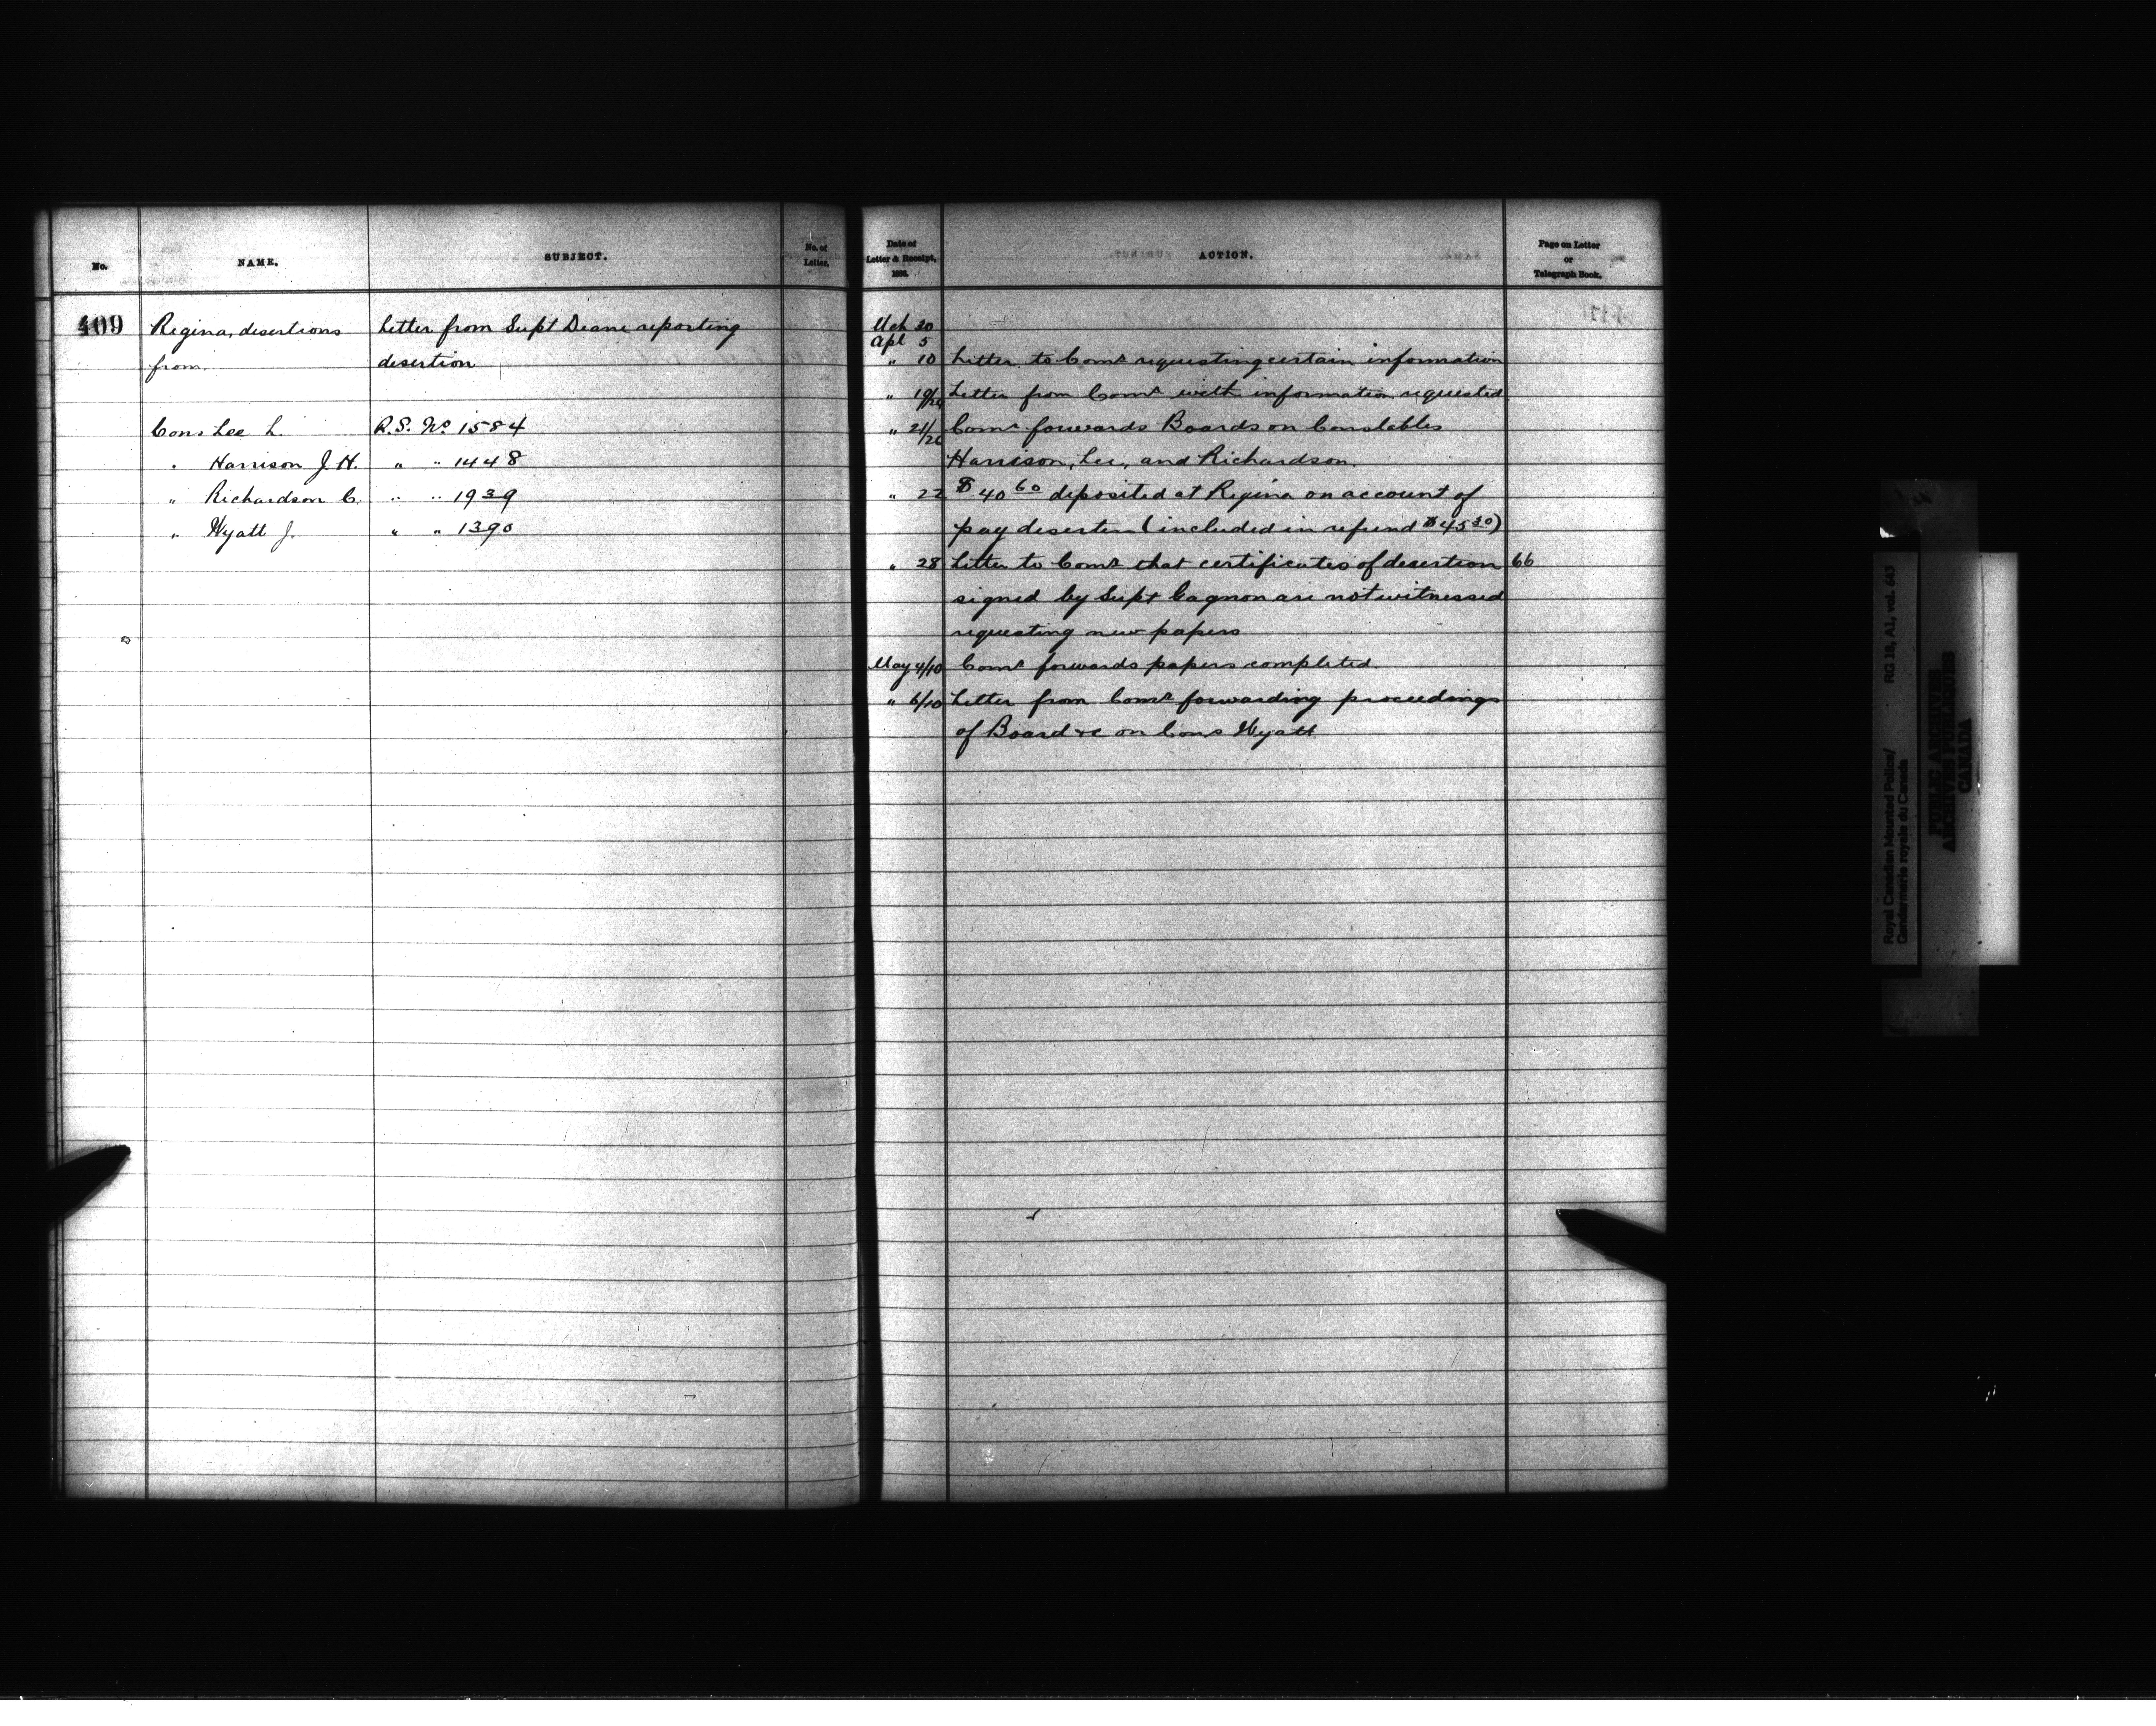 No.
NAME.
SUBJECT.
No. of
Letter.
409
Regina, desertions
Letter from Supt Deane reporting
from
desertion
Cons Lee L.
R.S. No 1584
" Harrison J. H.
" " 1448
" Richardson C.
" " 1939
" Wyatt J.
" " 1390
Date of
Letter & Receipt,
ACTION.
Page on Letter
or
Telegraph Book.
Mch 30
Apl 5
" 10 Letter to Comr requesting certain information
" 19/24 Letter from Comr with information requested
" 21/26 Comr forwards Boards on Constables
Harrison, Lee, and Richardson.
" 22 $40 60 deposited at Regina on account of
pay deserters (included in refund $45 30)
" 28 Letter to Comr that certificates of desertion 66
signed by Supt Gagnon are not witnessed
requesting new papers
May 4/10 Comr forwards papers completed.
" 6/10 Letter from Comr forwarding proceedings
of Board &c on Cons Wyatt
Royal Canadian Mounted Police/
Gendarmerie royale du Canada
RG 18, A1, vol. 643
PUBLIC ARCHIVES
ARCHIVES PUBLIQUES
CANADA